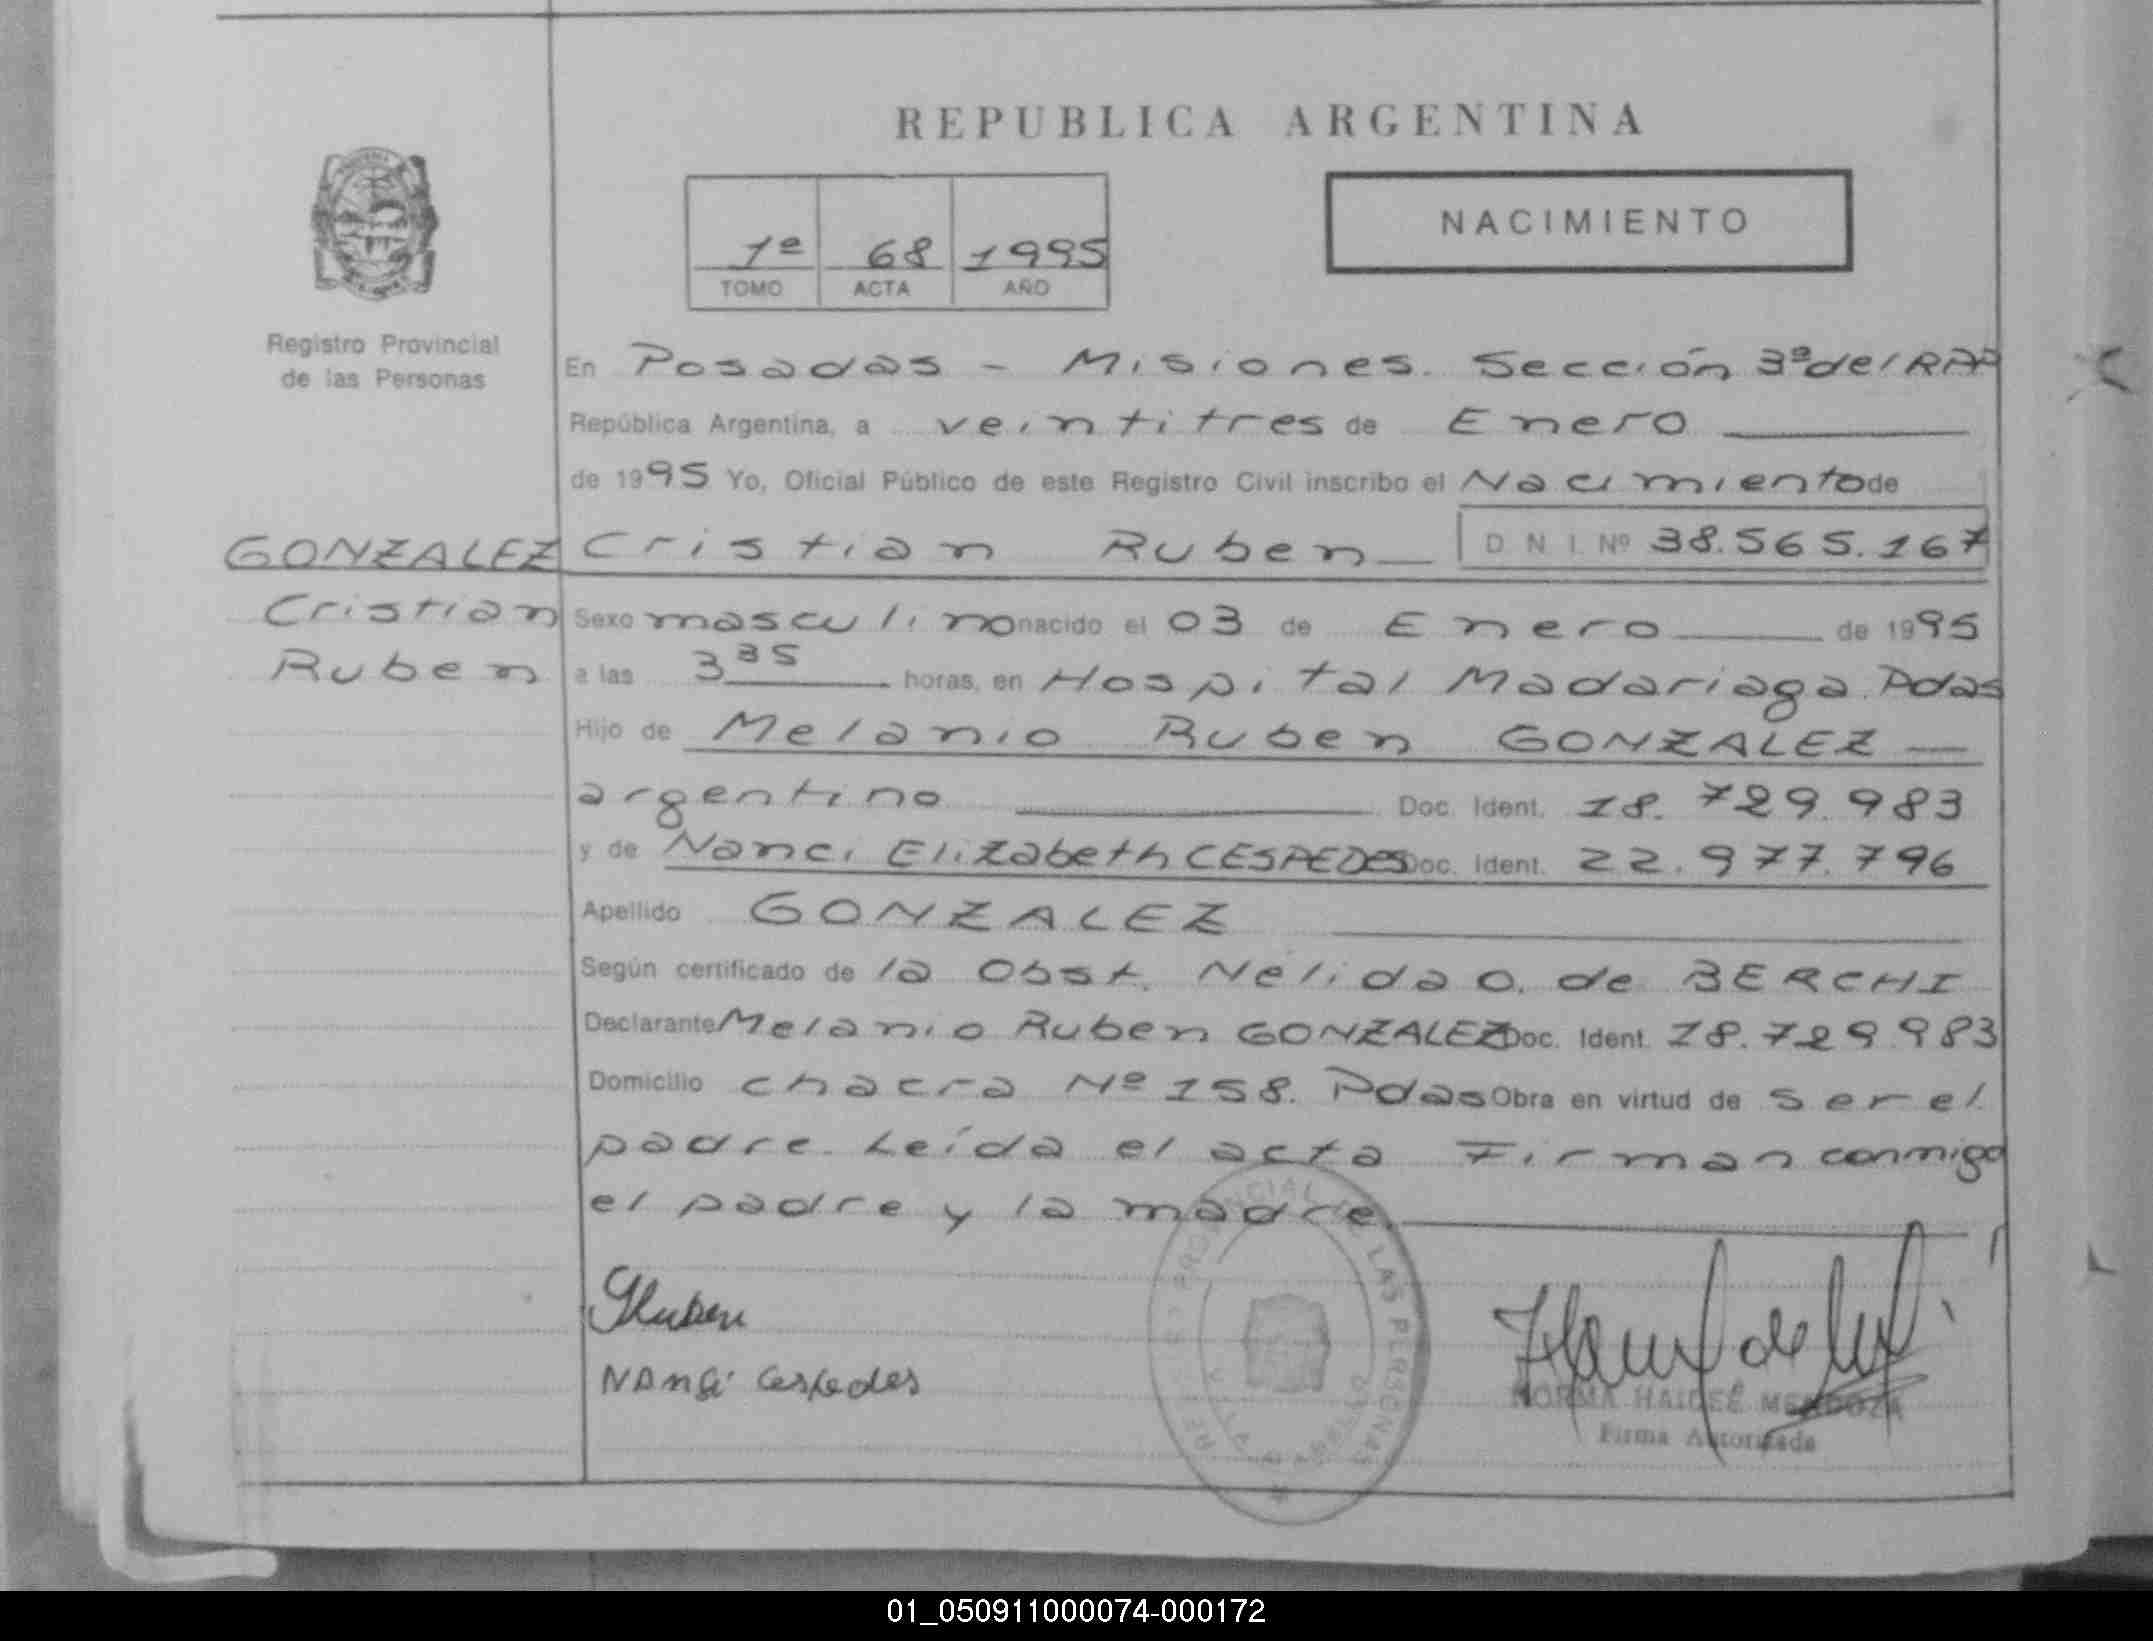 REPUBLICA ARGENTINA
1º 68 1995
TOMO ACTA AÑO
NACIMIENTO
Registro Provincial
de las Personas
En Posadas - Misiones. Sección 3ª del RPP
República Argentina, a veintitres de Enero
de 1995 Yo, Oficial Público de este Registro Civil inscribo el Nacimiento de
Cristian Ruben D N I. Nº 38.565.167
GONZALEZ
Cristian
Ruben
Sexo masculino nacido el 03 de Enero de 1995
a las 3 35 horas, en Hospital Madariaga. Pdas
Hijo de Melanio Ruben GONZALEZ
argentino Doc. Ident. 18.729.983
y de Nanci Elizabeth CESPEDES Doc. Ident. 22.977.796
Apellido GONZALEZ
Según certificado de la Obst. Nélida O. de BERCHI
Declarante Melanio Ruben GONZALEZ Doc. Ident. 18.729.983
Domicilio chacra Nº 158. Pdas Obra en virtud de ser el
padre. Leída el acta Firman conmigo
el padre y la madre.
Nanci Cespedes
PROVINCIAL DE LAS PERSONAS
NORMA HAIDEÉ MENDOZA
Firma Autorizada
01_050911000074-000172